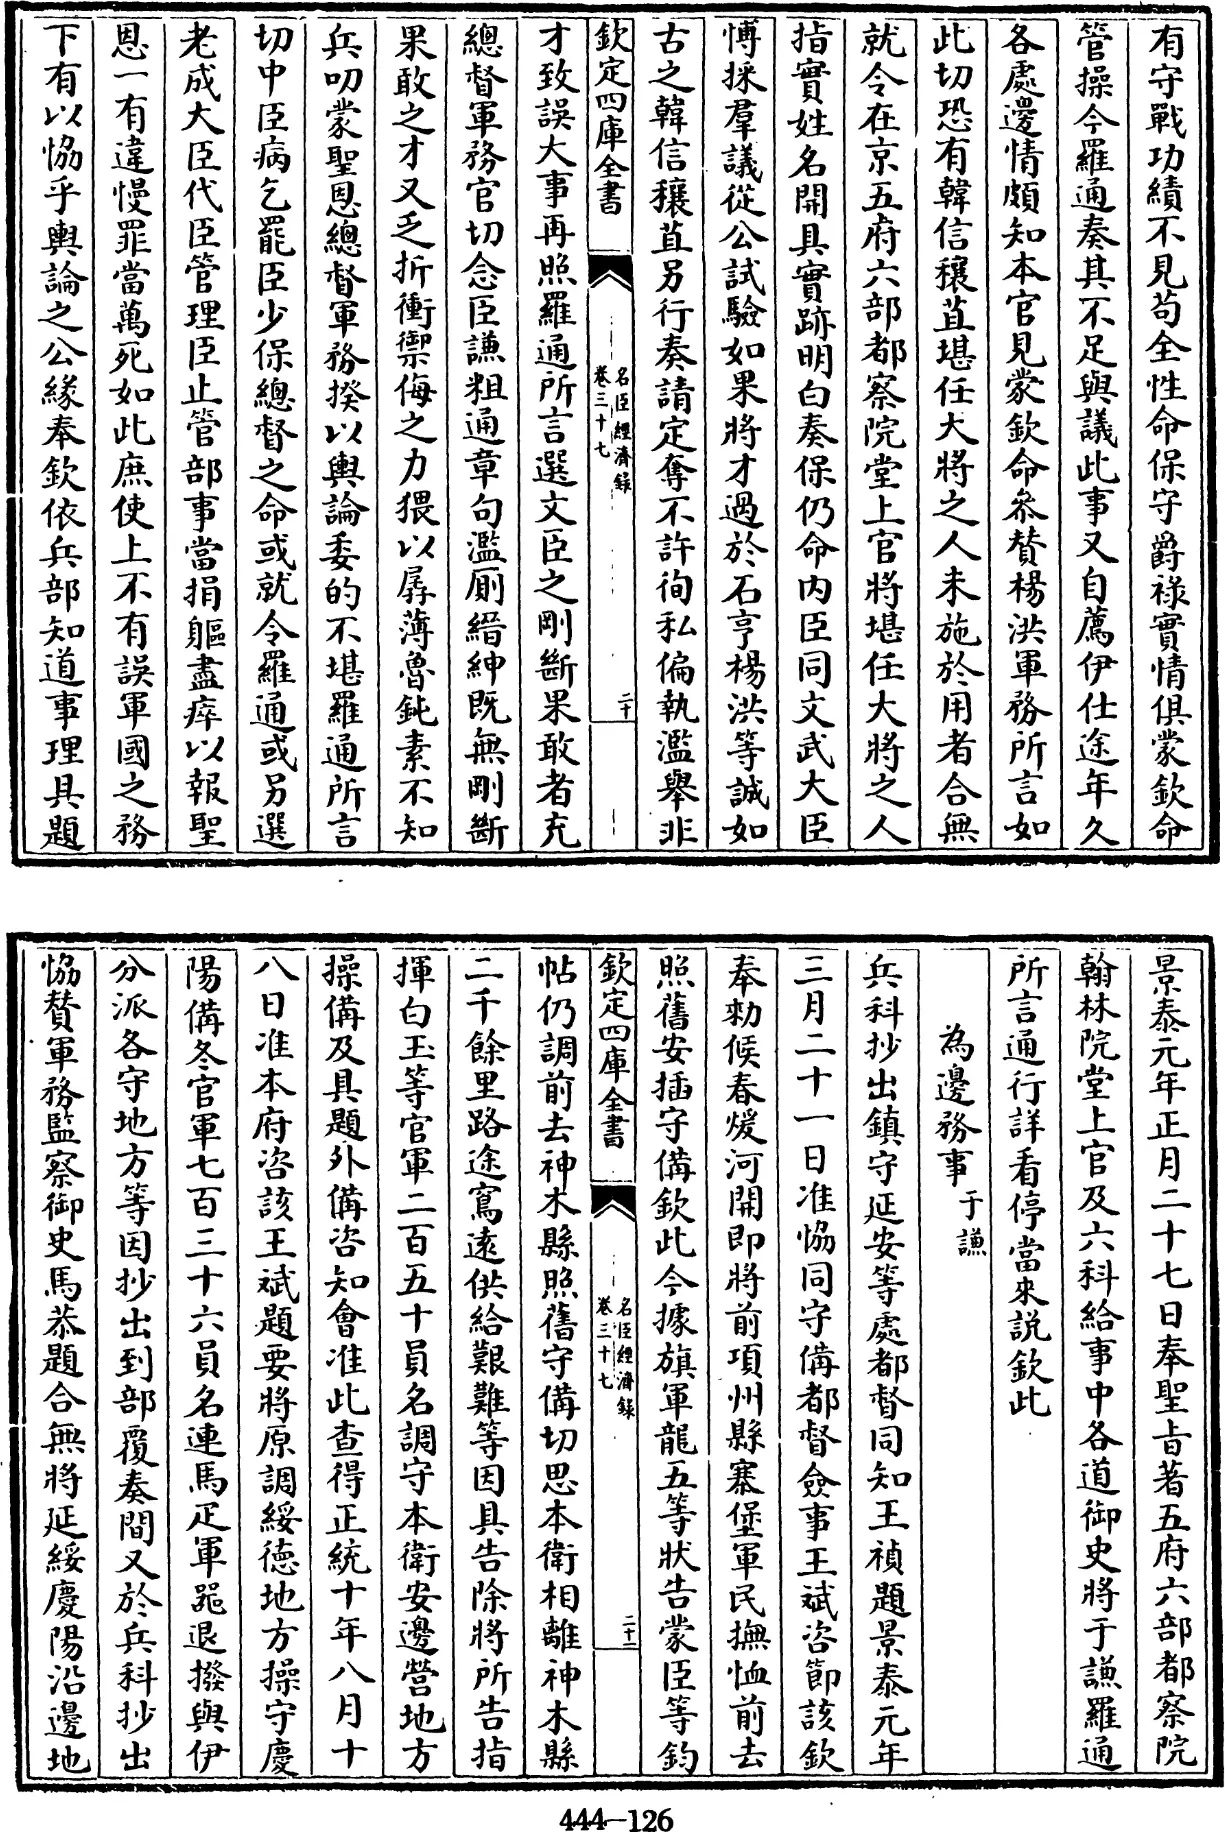 有守戰功績不見苟全性命保守爵祿實情俱蒙欽命
管操今羅通奏其不足與議此事又自薦伊仕途年久
各處邊情頗知本官見蒙欽命叅賛楊洪軍務所言如
此切恐有韓信穰苴堪任大將之人未施於用者合無
就令在京五府六部都察院堂上官將堪任大將之人
指實姓名開具實跡明白奏保仍命内臣同文武大臣
愽採羣議從公試驗如果將才過於石亨楊洪等誠如
古之韓信穰苴另行奏請定奪不許徇私偏執濫舉非
欽定四庫全書
名臣經濟録
卷三十七
二十
才致誤大事再照羅通所言選文臣之剛斷果敢者充
總督軍務官切念臣謙粗通章句濫厠縉紳既無剛斷
果敢之才又乏折衝禦侮之力猥以孱薄魯鈍素不知
兵叨蒙聖恩總督軍務揆以輿論委的不堪羅通所言
切中臣病乞罷臣少保總督之命或就令羅通或另選
老成大臣代臣管理臣止管部事當捐軀盡瘁以報聖
恩一有違慢罪當萬死如此庶使上不有誤軍國之務
下有以恊乎輿論之公緣奉欽依兵部知道事理具題
景泰元年正月二十七日奉聖㫖著五府六部都察院
翰林院堂上官及六科給事中各道御史將于謙羅通
所言通行詳看停當來説欽此
為邊務事 于謙
兵科抄出鎮守延安等處都督同知王禎題景泰元年
三月二十一日准恊同守備都督僉事王斌咨節該欽
奉勅候春煖河開即將前項州縣寨堡軍民撫恤前去
照舊安插守備欽此今據旗軍龍五等狀告蒙臣等鈞
欽定四庫全書
名臣經濟録
卷三十七
二十一
帖仍調前去神木縣照舊守備切思本衛相離神木縣
二千餘里路途寫逺供給艱難等因具告除將所告指
揮白玉等官軍二百五十員名調守本衛安邊營地方
操備及具題外備咨知會准此查得正統十年八月十
八日准本府咨該王斌題要將原調綏德地方操守慶
陽備冬官軍七百三十六員名連馬疋軍噐退撥與伊
分派各守地方等因抄出到部覆奏間又於兵科抄出
恊賛軍務監察御史馬恭題合無將延綏慶陽沿邊地
444-126